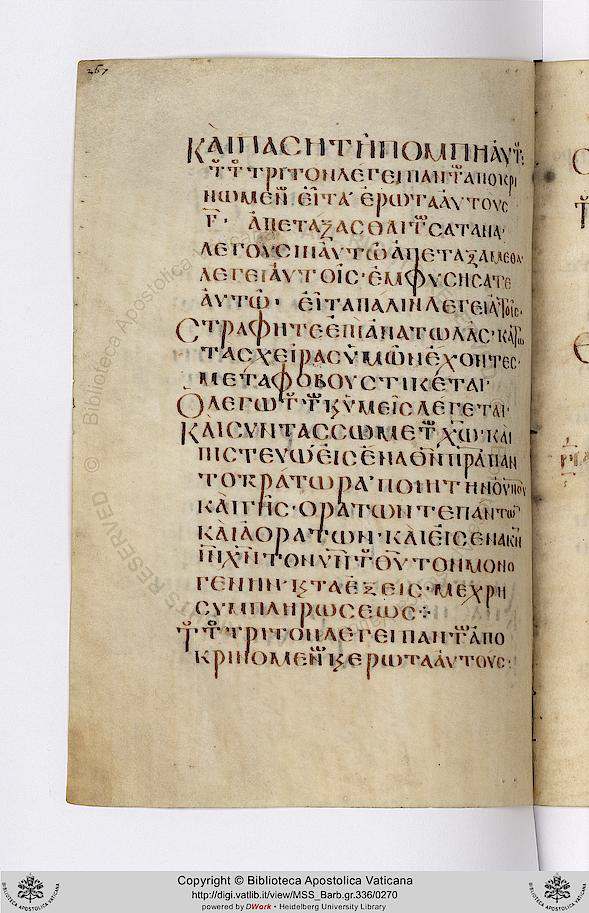 267
ΚΑΙ ΠΑΣΗ ΤΗ ΠΟΜΠΗ ΑΥΤΟΥ
ΤΡΙΤΟΝ ΛΕΓΕΙ ΠΑΝΤ ΑΠΟΚΡΙ
ΝΩΜΕΝ ΕΙΤΑ ΕΡΩΤΑ ΑΥΤΟΥΣ
Γ · ΑΠΕΤΑΞΑΣΘΑΙ ΤΩ ΣΑΤΑΝΑ
ΛΕΓΟΥΣΙΝ ΑΥΤΩ ΑΠΕΤΑΞΑΜΕΘΑ
ΛΕΓΕΙ ΑΥΤΟΙΣ · ΕΜΦΥΣΗΣΑΤΕ
ΑΥΤΩ · ΕΙΤΑ ΠΑΛΙΝ ΛΕΓΕΙ ΑΥΤΟΙΣ ·
ΣΤΡΑΦΗΤΕ ΕΠΙ ΑΝΑΤΩΛΑΣ · ΚΑΤΩ
ΤΑΣ ΧΕΙΡΑΣ ΥΜΩΝ ΕΧΟΝΤΕΣ ·
ΜΕΤΑ ΦΟΒΟΥ ΣΤΙΚΕΤΑΙ ·
Ο ΛΕΓΩ Κ ΥΜΕΙΣ ΛΕΓΕΤΑΙ ·
ΚΑΙ ΣΥΝΤΑΣΣΩΜΕ ΧΩ · ΚΑΙ
ΠΙΣΤΕΥΩ ΕΙΣ ΕΝΑ ΘΝ ΠΡΑ ΠΑΝ
ΤΟΚΡΑΤΩΡΑ · ΠΟΙΗΤΗΝ ΟΥΝΟΥ
ΚΑΙ ΓΗΣ · ΟΡΑΤΩΝ ΤΕ ΠΑΝΤΩ
ΚΑΙ ΑΟΡΑΤΩΝ · ΚΑΙ ΕΙΣ ΕΝΑ ΚΝ
ΙΝ ΧΝ ΤΟΝ ΥΝ ΤΟΥ ΘΥ ΤΟΝ ΜΟΝΟ
ΓΕΝΗΝ · Κ ΤΑ ΕΞΕΙΣ · ΜΕΧΡΗ
ΣΥΜΠΛΗΡΩΣΕΩΣ
ΤΡΙΤΟΝ ΛΕΓΕΙ ΠΑΝΤ ΑΠΟ
ΚΡΙΝΟΜΕΝ Κ ΕΡΩΤΑ ΑΥΤΟΥΣ :
© Biblioteca Apostolica
RIGHTS RESERVED
Copyright © Biblioteca Apostolica Vaticana
http://digi.vatlib.it/view/MSS_Barb.gr.336/0270
powered by DWork • Heidelberg University Library